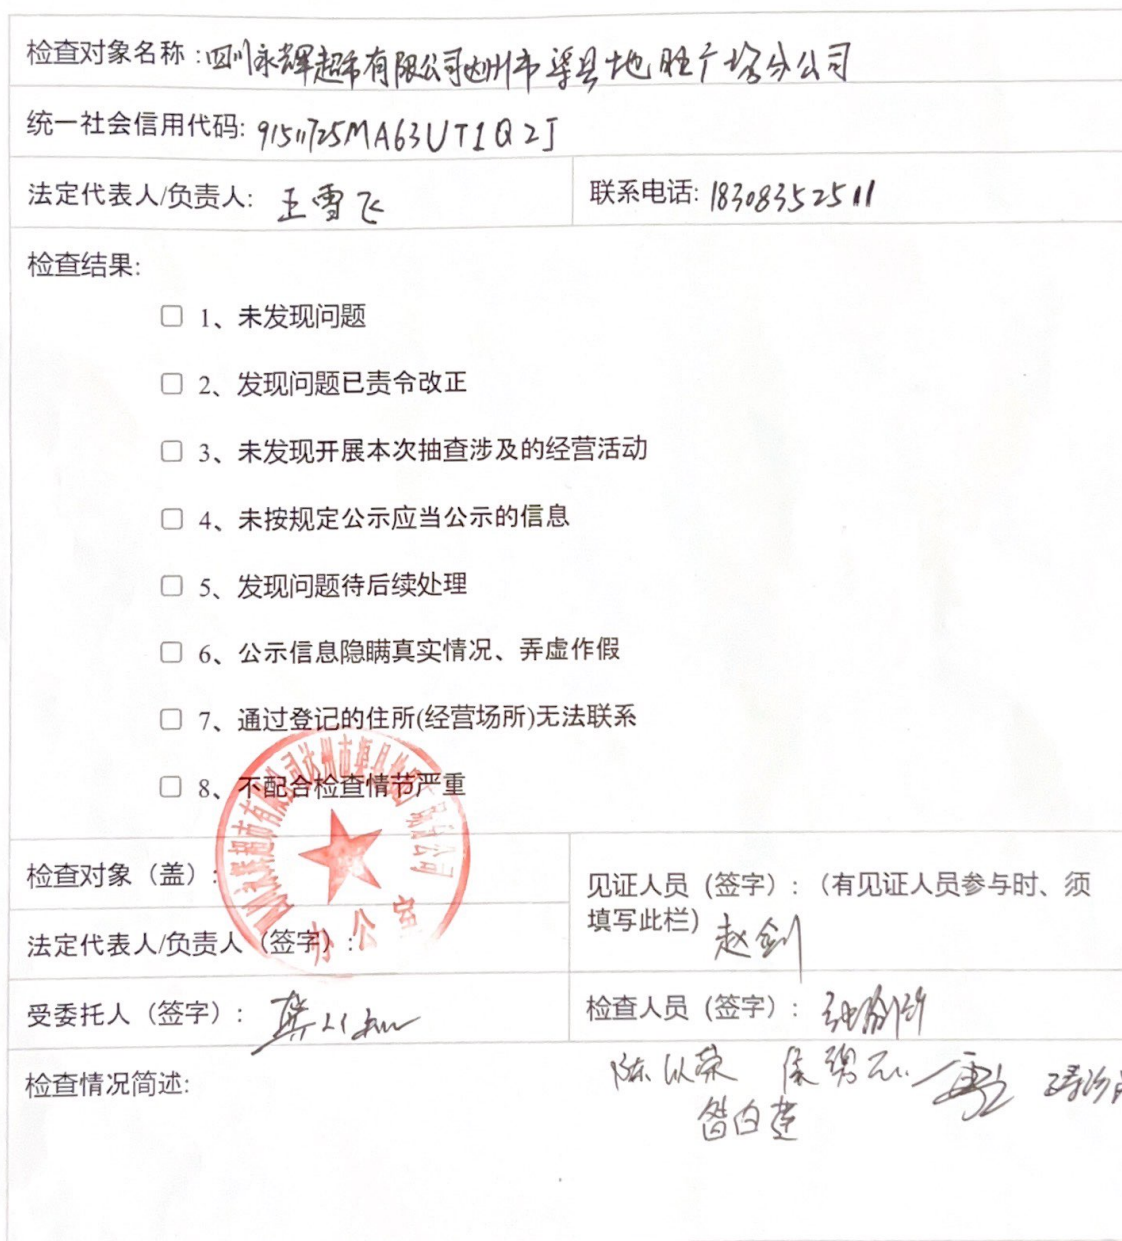 检查对象名称:四川永辉超市有限公司达州市渠县地胜广场分公司
统一社会信用代码: 91511725MA63UT1Q2J
法定代表人/负责人: 王雪飞
联系电话: 18308352511
检查结果:
1、未发现问题
2、发现问题已责令改正
3、未发现开展本次抽查涉及的经营活动
4、未按规定公示应当公示的信息
5、发现问题待后续处理
6、公示信息隐瞒真实情况、弄虚作假
7、通过登记的住所(经营场所)无法联系
8、不配合检查情节严重
检查对象（盖）:
办公室
法定代表人/负责人（签字）:
见证人员（签字）:（有见证人员参与时、须
填写此栏）赵剑
受委托人（签字）:
检查人员（签字）:
检查情况简述:
陈以荣